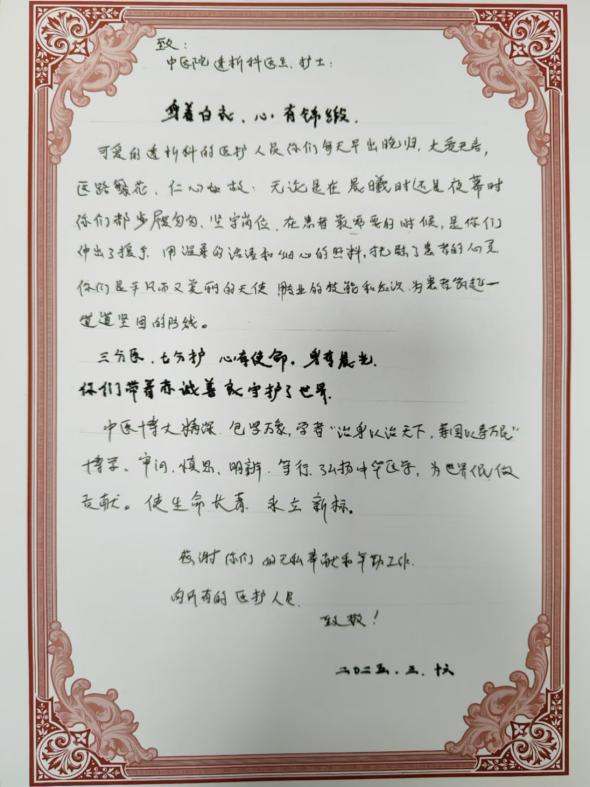 致:
中医院透析科医生、护士:
身着白衣、心有锦缎.
可爱的透析科的医护人员你们每天早出晚归,大爱无言,
医路繁花、仁心如故:无论是在晨曦时还是夜幕时
你们都步履匆匆、坚守岗位,在患者最需要的时候,是你们
伸出了援手.用温柔的话语和细心的照料,抚慰了患者的心灵
你们是平凡而又美丽的天使 用专业的技能和 为患者筑起一
道道坚固的防线。
三分医、七分护 心有使命.身有晨光.
你们带着赤诚善良守护了世界.
中医博大精深.包罗万象,学者“治身以治天下,寿国以寿万民”
博学、审问、慎思、明辨、笃行、弘扬中华医学,为世界人民做
贡献。使生命长春 永立新标。
感谢你们的无私奉献和辛勤工作.
向所有的医护人员.
致敬!
二0二五.五.十六